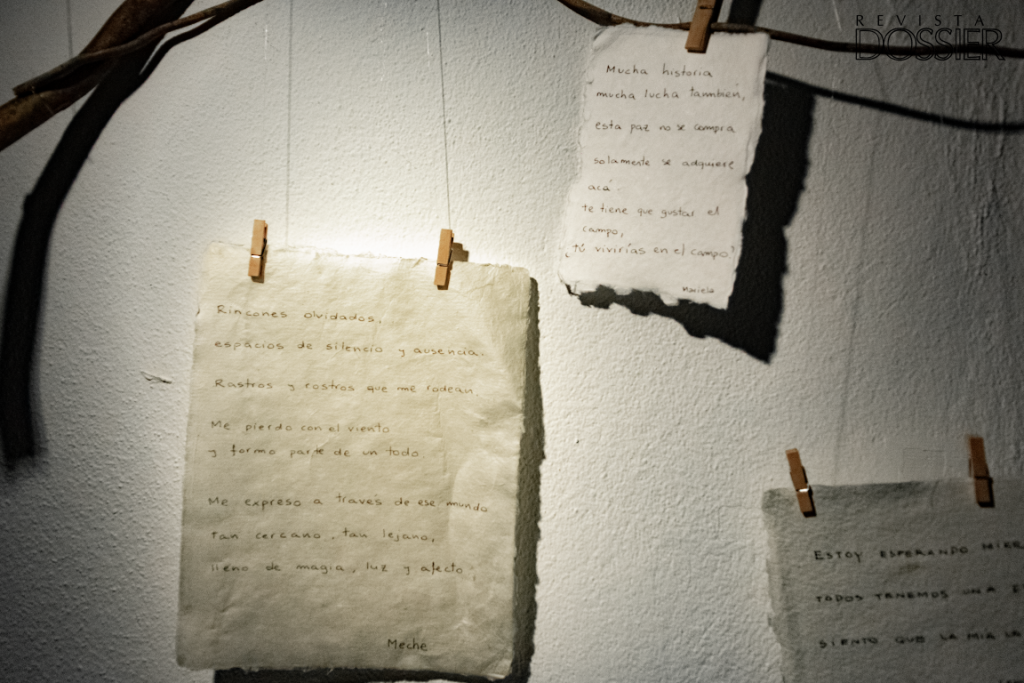 REVISTA
DOSSIER
Mucha historia
mucha lucha también,
esta paz no se compra
solamente se adquiere
acá.
te tiene que gustar el
campo,
¿tú vivirías en el campo?
Mariela
Rincones olvidados,
espacios de silencio y ausencia.
Rastros y rostros que me rodean.
Me pierdo con el viento
y formo parte de un todo.
Me expreso a través de ese mundo
tan cercano, tan lejano,
lleno de magia, luz y afecto.
Meche
ESTOY ESPERANDO
TODOS TENEMOS UNA
SIENTO QUE LA MIA LA